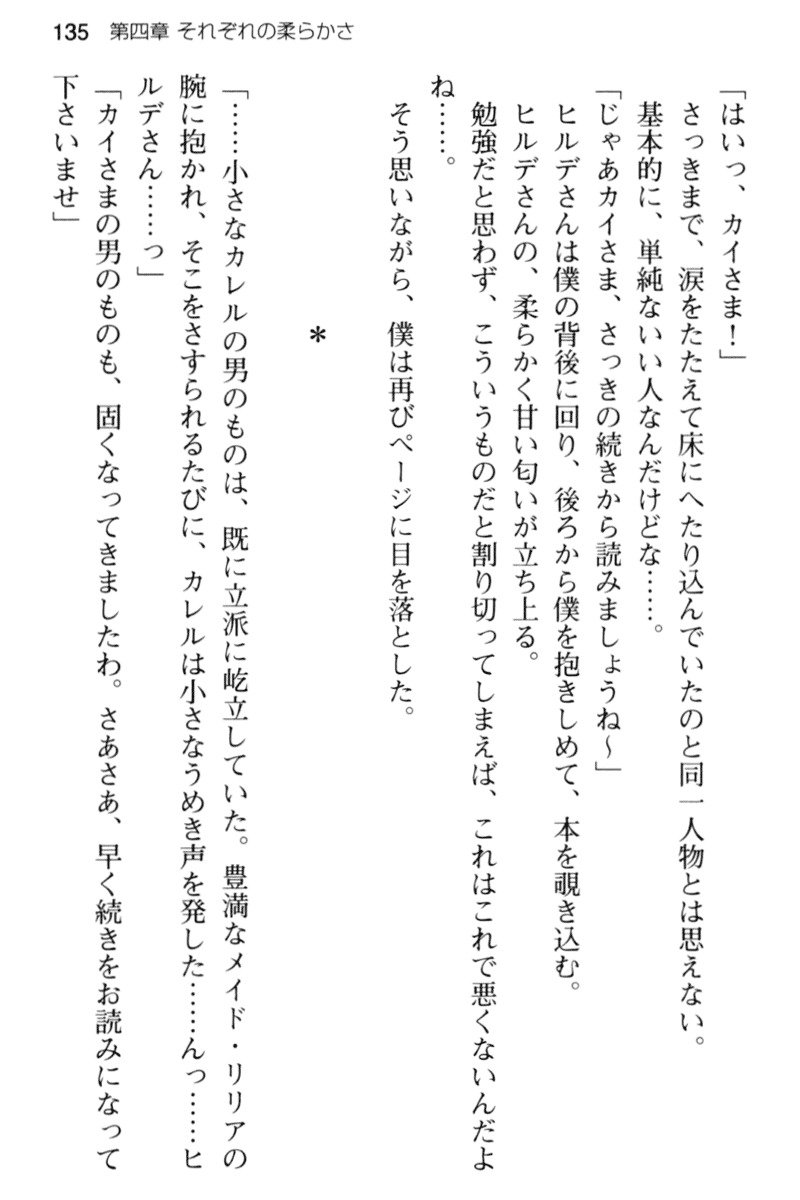 135 第四章 それぞれの柔らかさ
「はいっ、カイさま！」
さっきまで、涙をたたえて床にへたり込んでいたのと同一人物とは思えない。
基本的に、単純ないい人なんだけどな……。
「じゃあカイさま、さっきの続きから読みましょうね～」
ヒルデさんは僕の背後に回り、後ろから僕を抱きしめて、本を覗き込む。
ヒルデさんの、柔らかく甘い匂いが立ち上る。
勉強だと思わず、こういうものだと割り切ってしまえば、これはこれで悪くないんだよ
ね……。
そう思いながら、僕は再びページに目を落とした。
＊
「……小さなカレルの男のものは、既に立派に屹立していた。豊満なメイド・リリアの
腕に抱かれ、そこをさすられるたびに、カレルは小さなうめき声を発した……んっ……ヒ
ルデさん……っ」
「カイさまの男のものも、固くなってきましたわ。さあさあ、早く続きをお読みになって
下さいませ」